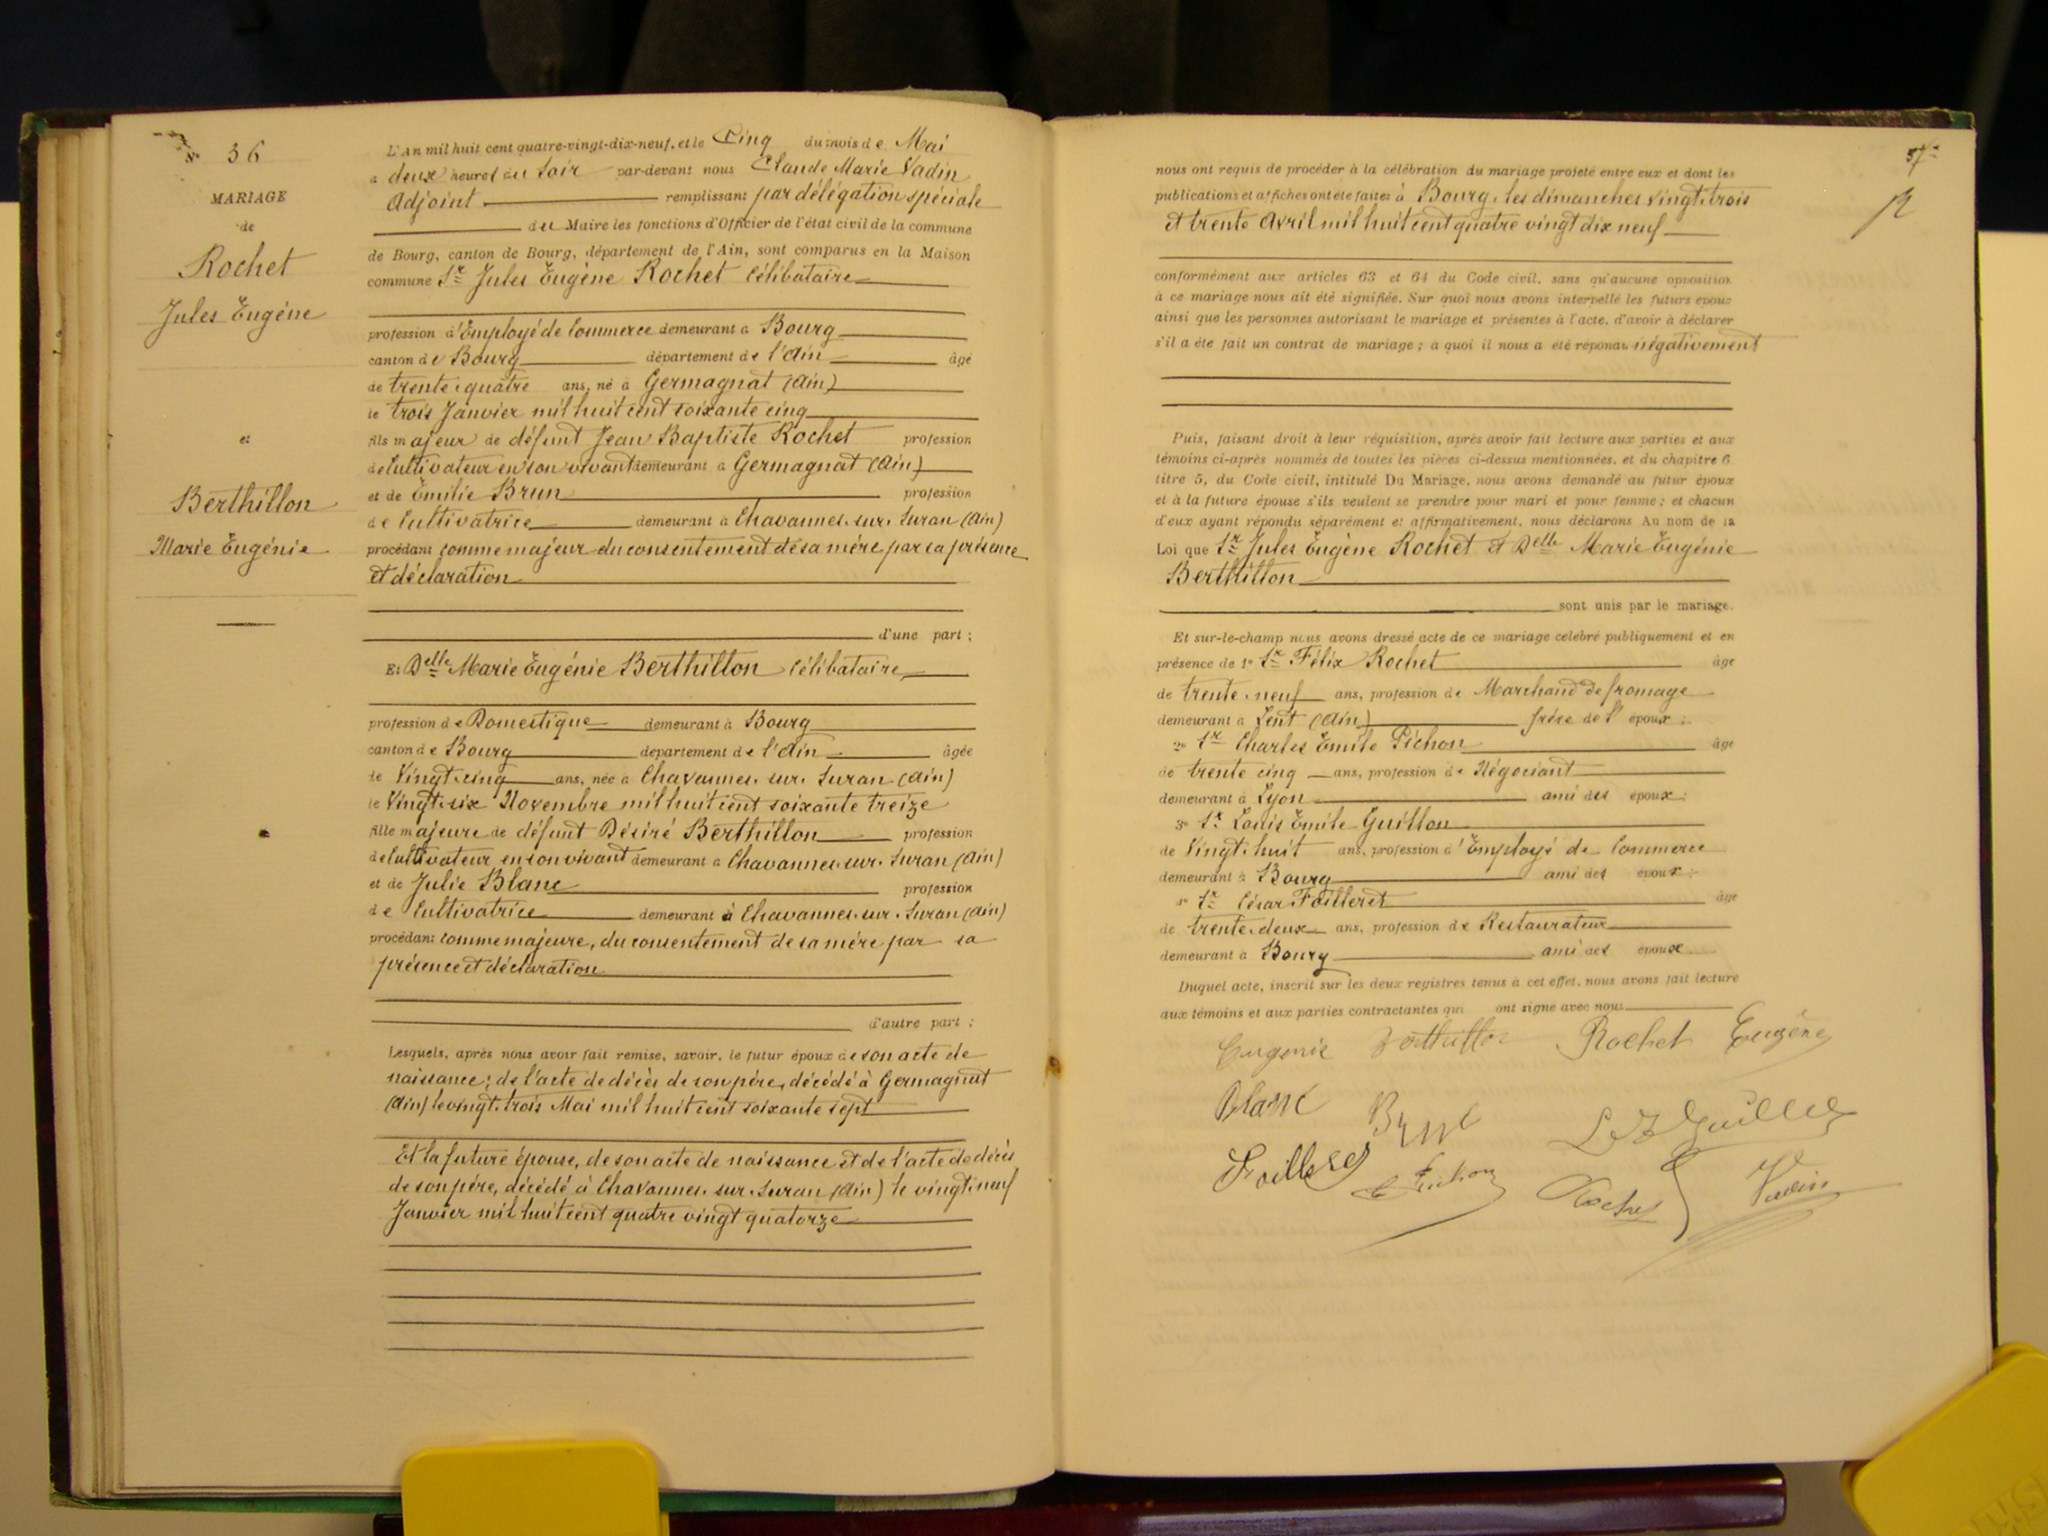 N° 36
MARIAGE
de
Rochet
Jules Eugène
et
Berthillon
Marie Eugénie
L'An mil huit cent quatre-vingt-dix-neuf, et le Cinq du mois de Mai
à deux heures du soir par-devant nous Claude Marie Vadin
Adjoint remplissant par délégation spéciale
du Maire les fonctions d'Officier de l'état civil de la commune
de Bourg, canton de Bourg, département de l'Ain, sont comparus en la Maison
commune Sr Jules Eugène Rochet célibataire
profession d'Employé de Commerce demeurant à Bourg
canton de Bourg département de l'Ain âgé
de trente-quatre ans, né à Germagnat (Ain)
le trois Janvier mil huit cent soixante cinq
fils majeur de défunt Jean Baptiste Rochet profession
de Cultivateur en son vivant demeurant à Germagnat (Ain)
et de Emilie Brun profession
de Cultivatrice demeurant à Chavannes-sur-Suran (Ain)
procédant comme majeur du consentement de sa mère par sa présence
et déclaration
d'une part ;
Et Delle Marie Eugénie Berthillon célibataire
profession de Domestique demeurant à Bourg
canton de Bourg département de l'Ain âgée
de Vingt-cinq ans, née à Chavannes-sur-Suran (Ain)
le Vingt-six Novembre mil huit cent soixante treize
fille majeure de défunt Désiré Berthillon profession
de Cultivateur en son vivant demeurant à Chavannes-sur-Suran (Ain)
et de Julie Blanc profession
de Cultivatrice demeurant à Chavannes-sur-Suran (Ain)
procédant comme majeure, du consentement de sa mère par sa
présence et déclaration
d'autre part ;
Lesquels, après nous avoir fait remise, savoir, le futur époux de son acte de
naissance ; de l'acte de décès de son père, décédé à Germagnat
(Ain) le vingt-trois Mai mil huit cent soixante sept
Et la future épouse, de son acte de naissance et de l'acte de décès
de son père, décédé à Chavannes-sur-Suran (Ain) le vingt-neuf
Janvier mil huit cent quatre vingt quatorze
37
nous ont requis de procéder à la célébration du mariage projeté entre eux et dont les
publications et affiches ont été faites à Bourg, les dimanches vingt-trois
et trente Avril mil huit cent quatre vingt dix neuf
conformément aux articles 63 et 64 du Code civil, sans qu'aucune opposition
à ce mariage nous ait été signifiée. Sur quoi nous avons interpellé les futurs époux
ainsi que les personnes autorisant le mariage et présentes à l'acte, d'avoir à déclarer
s'il a été fait un contrat de mariage ; à quoi il nous a été répondu négativement
Puis, faisant droit à leur réquisition, après avoir fait lecture aux parties et aux
témoins ci-après nommés de toutes les pièces ci-dessus mentionnées, et du chapitre 6
titre 5, du Code civil, intitulé Du Mariage, nous avons demandé au futur époux
et à la future épouse s'ils veulent se prendre pour mari et pour femme ; et chacun
d'eux ayant répondu séparément et affirmativement, nous déclarons Au nom de la
Loi que Sr Jules Eugène Rochet et Delle Marie Eugénie
Berthillon
sont unis par le mariage.
Et sur-le-champ nous avons dressé acte de ce mariage célébré publiquement et en
présence de 1° Sr Félix Rochet âgé
de trente-neuf ans, profession de Marchand de fromage
demeurant à Lent (Ain) frère de l'époux ;
2° Sr Charles Emile Pichon âgé
de trente cinq ans, profession de Négociant
demeurant à Lyon ami des époux ;
3° Sr Louis Emile Guillon
de Vingt-huit ans, profession d'Employé de Commerce
demeurant à Bourg ami des époux ;
4° Sr César Foilleret âgé
de trente-deux ans, profession de Restaurateur
demeurant à Bourg ami des époux
Duquel acte, inscrit sur les deux registres tenus à cet effet, nous avons fait lecture
aux témoins et aux parties contractantes qui ont signé avec nous
Eugenie Berthillon Rochet Eugène
Blanc Brun
Foilleret Pichon Rochet Vadin